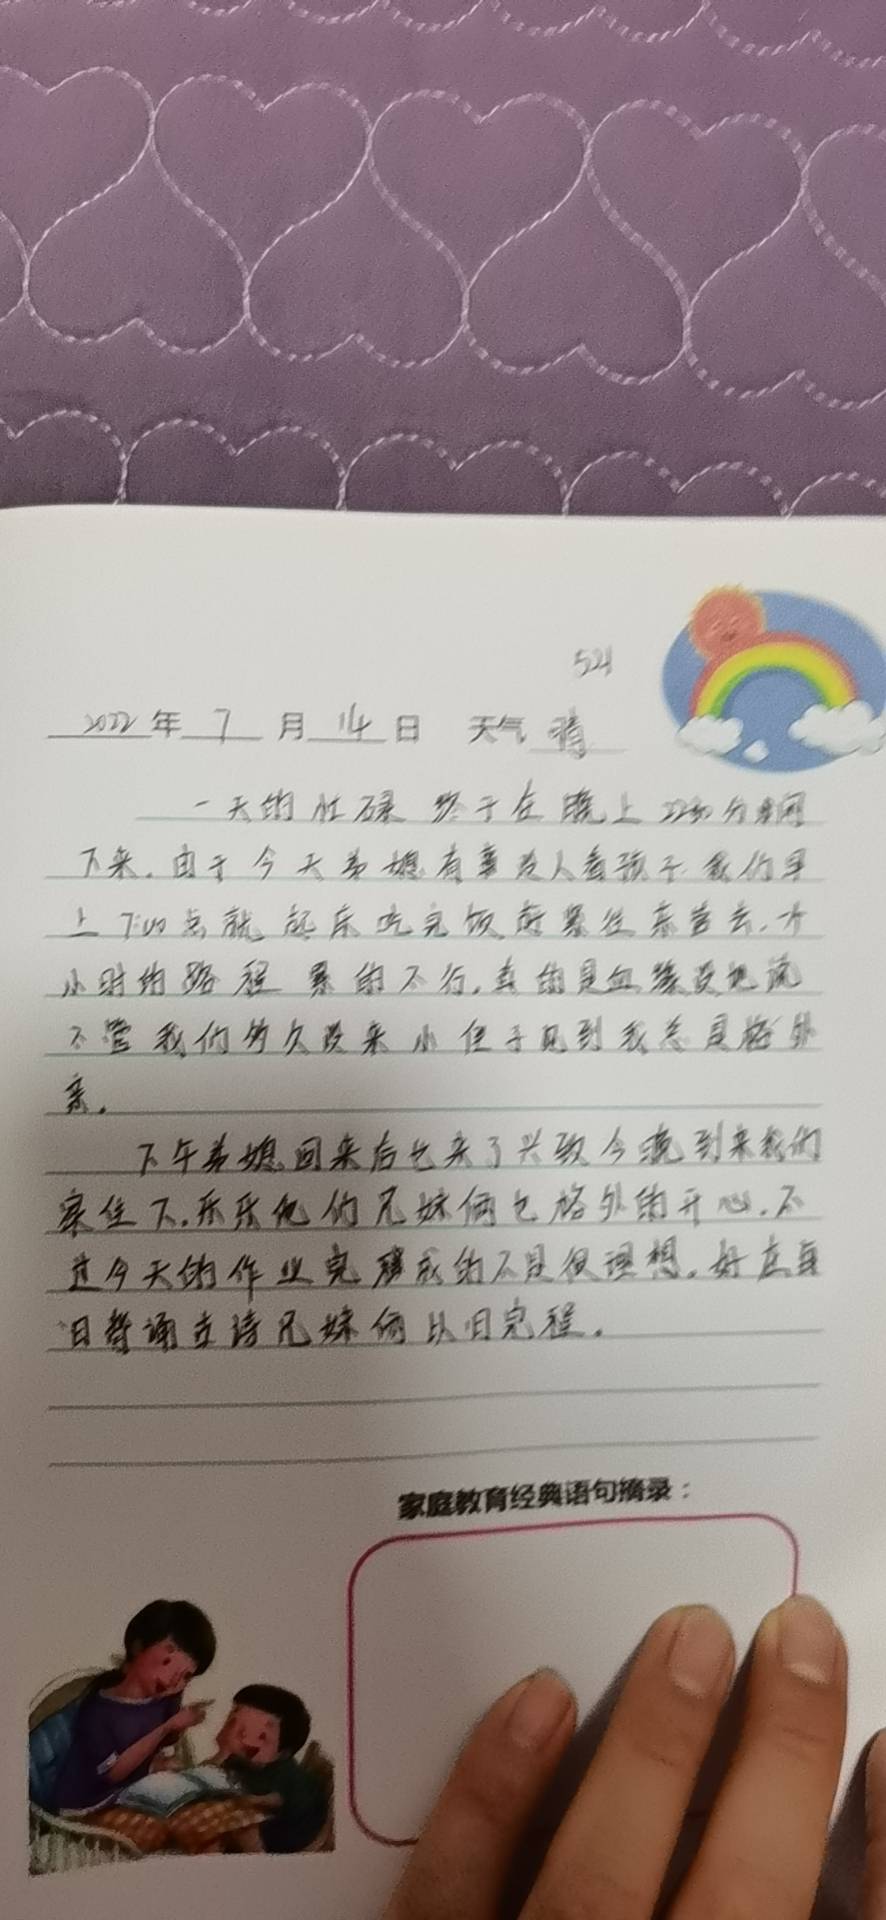 521
2022年 7 月 14 日 天气 晴
一天的忙碌 终于在 晚上 22:30分
下来.由于今天弟媳有事没人看孩子 我们早
上 7:00点就 起床吃完饭 赶紧往 去.
小时的路程 累的不行.真的是血缘 
不管我们多久没来 小侄子见到我总是格外
亲.
下午弟媳回来后也来了兴致今 到来我们
家住下.乐乐他们兄妹俩也格外的开心.不
过今天的作业完 成的不是很理想.好在每
日背诵古诗兄妹俩 完程.
家庭教育经典语句摘录：